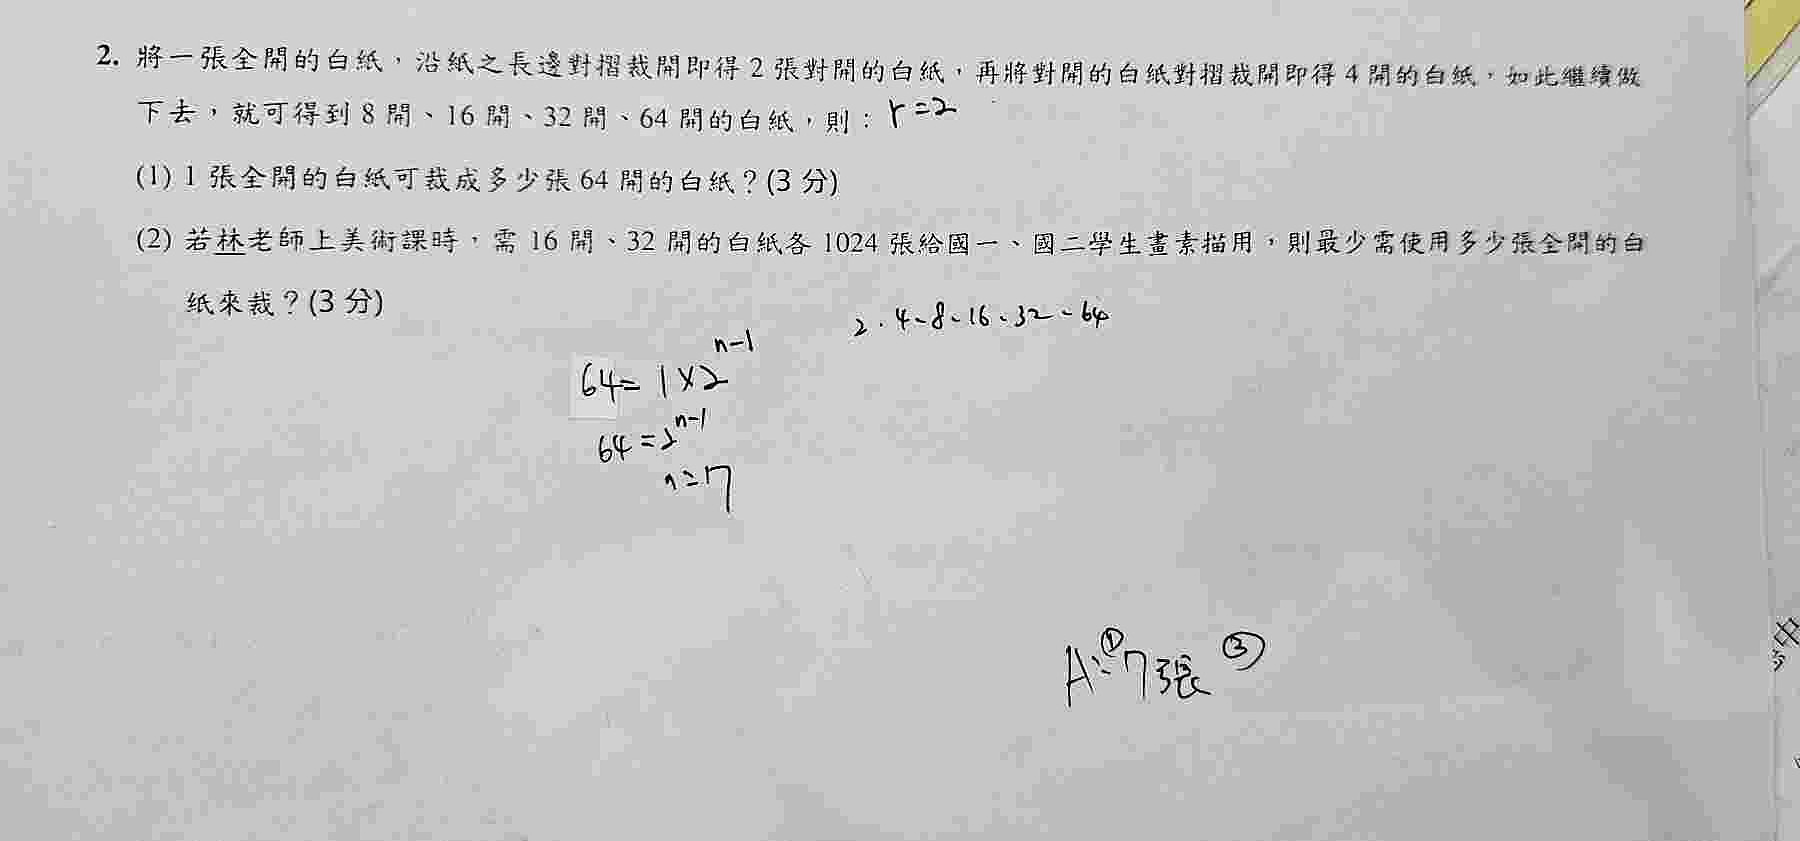 2. 將一張全開的白紙，沿紙之長邊對摺裁開即得 2 張對開的白紙，再將對開的白紙對摺裁開即得 4 開的白紙，如此繼續做
下去，就可得到 8 開、16 開、32 開、64 開的白紙，則： r=2
(1) 1 張全開的白紙可裁成多少張 64 開的白紙？(3 分)
(2) 若林老師上美術課時，需 16 開、32 開的白紙各 1024 張給國一、國二學生畫素描用，則最少需使用多少張全開的白
紙來裁？(3 分)
2、4、8、16、32、64
64=1×2^{n-1}
64=2^{n-1}
n=7
A:①7張 ②